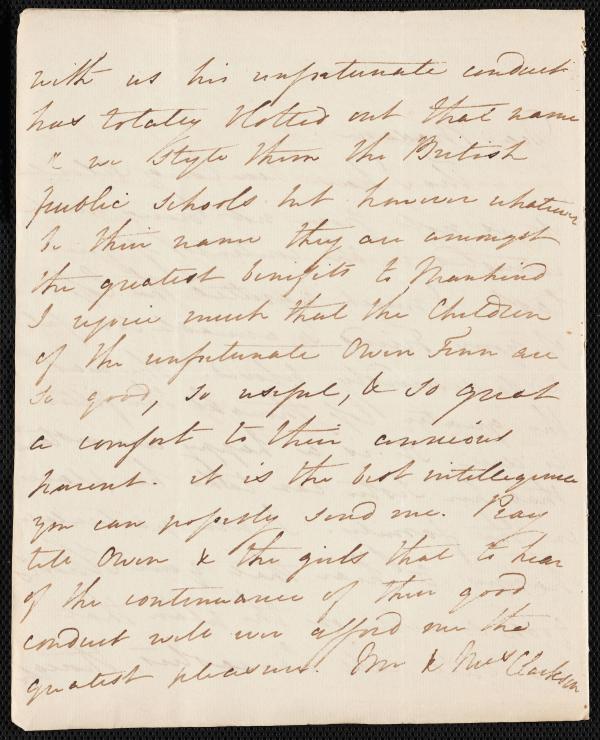 with us his unfortunate conduct
has totaley blotted out that name
" we style them the British
public schools but however whatever
be their name they are amongst
the greatest benifits to Mankind
I rejoice much that the Children
of the unfortunate Owen Finn are
so good, so useful, & so great
a comfort to their anxious
parent. it is the best intelligence
you can possibly send me. Pray
tell Owen & the girls that to hear
of the continuance of their good
conduct will ever afford me the
greatest pleasure. Mr & Mrs Clarkson